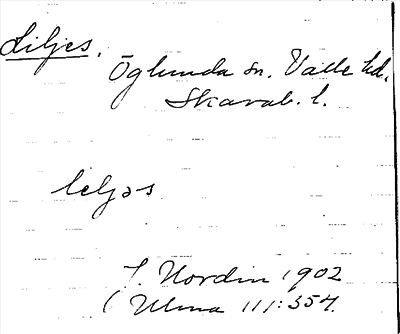 Liljes.
Öglunda sn. Valle hd.
Skarab. l.
leljəs
T. Nordin 1902
(Ulma 111:354.